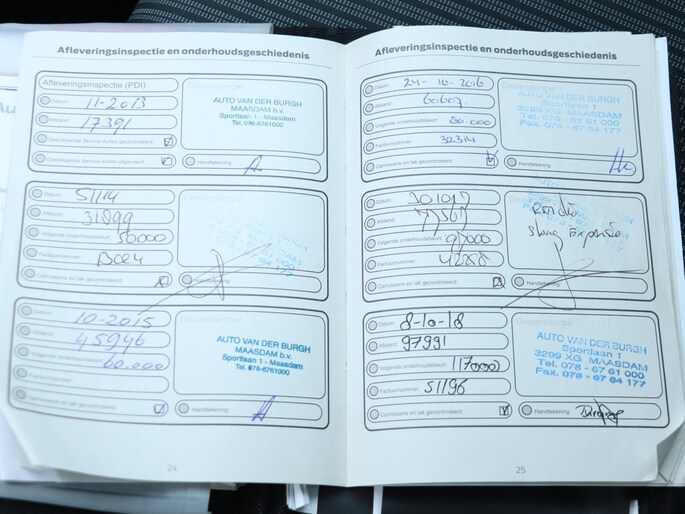 Afleveringsinspectie en onderhoudsgeschiedenis
Afleveringsinspectie (PDI)
Datum: 11-2013
Afstand: 17391
Openstaande Service Acties gecontroleerd:
Openstaande Service Acties uitgevoerd:
AUTO VAN DER BURGH
MAASDAM b.v.
Sportlaan 1 - Maasdam
Tel. 078-6761000
Handtekening:
Datum: 5/11/14
Afstand: 31899
Volgende onderhoudsbeurt: 50000
Factuurnummer:
Carrosserie en lak gecontroleerd:
Dealerstempel
Handtekening:
Datum: 10-2015
Afstand: 45946
Volgende onderhoudsbeurt: 60.000
Factuurnummer:
Carrosserie en lak gecontroleerd:
Dealerstempel
AUTO VAN DER BURGH
MAASDAM b.v.
Sportlaan 1 - Maasdam
Tel. 078-6761000
Handtekening:
24
Afleveringsinspectie en onderhoudsgeschiedenis
Datum: 24-10-2016
Afstand: 60607
Volgende onderhoudsbeurt: 80.000
Factuurnummer: 32314
Carrosserie en lak gecontroleerd:
AUTO VAN DER BURGH
Sportlaan 1
3299 XG MAASDAM
Tel. 078 - 67 61 000
Fax. 078 - 67 64 177
Handtekening:
Datum:
Afstand:
Volgende onderhoudsbeurt:
Factuurnummer:
Carrosserie en lak gecontroleerd:
Handtekening:
Datum: 8-10-18
Afstand: 97991
Volgende onderhoudsbeurt: 117000
Factuurnummer: 51196
Carrosserie en lak gecontroleerd:
Dealerstempel
AUTO VAN DER BURGH
Sportlaan 1
3299 XG MAASDAM
Tel. 078 - 67 61 000
Fax. 078 - 67 64 177
Handtekening:
25